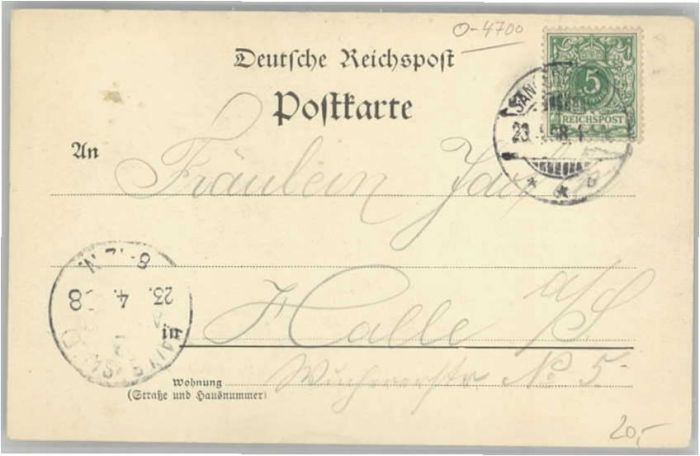 O-4700
Deutsche Reichspost
Postkarte
5
REICHSPOST
SANG
23
An Fräulein
8-12 N.
23. 4. 98
in Halle a/S
Wohnung
(Straße und Hausnummer)
No 5.
20,-